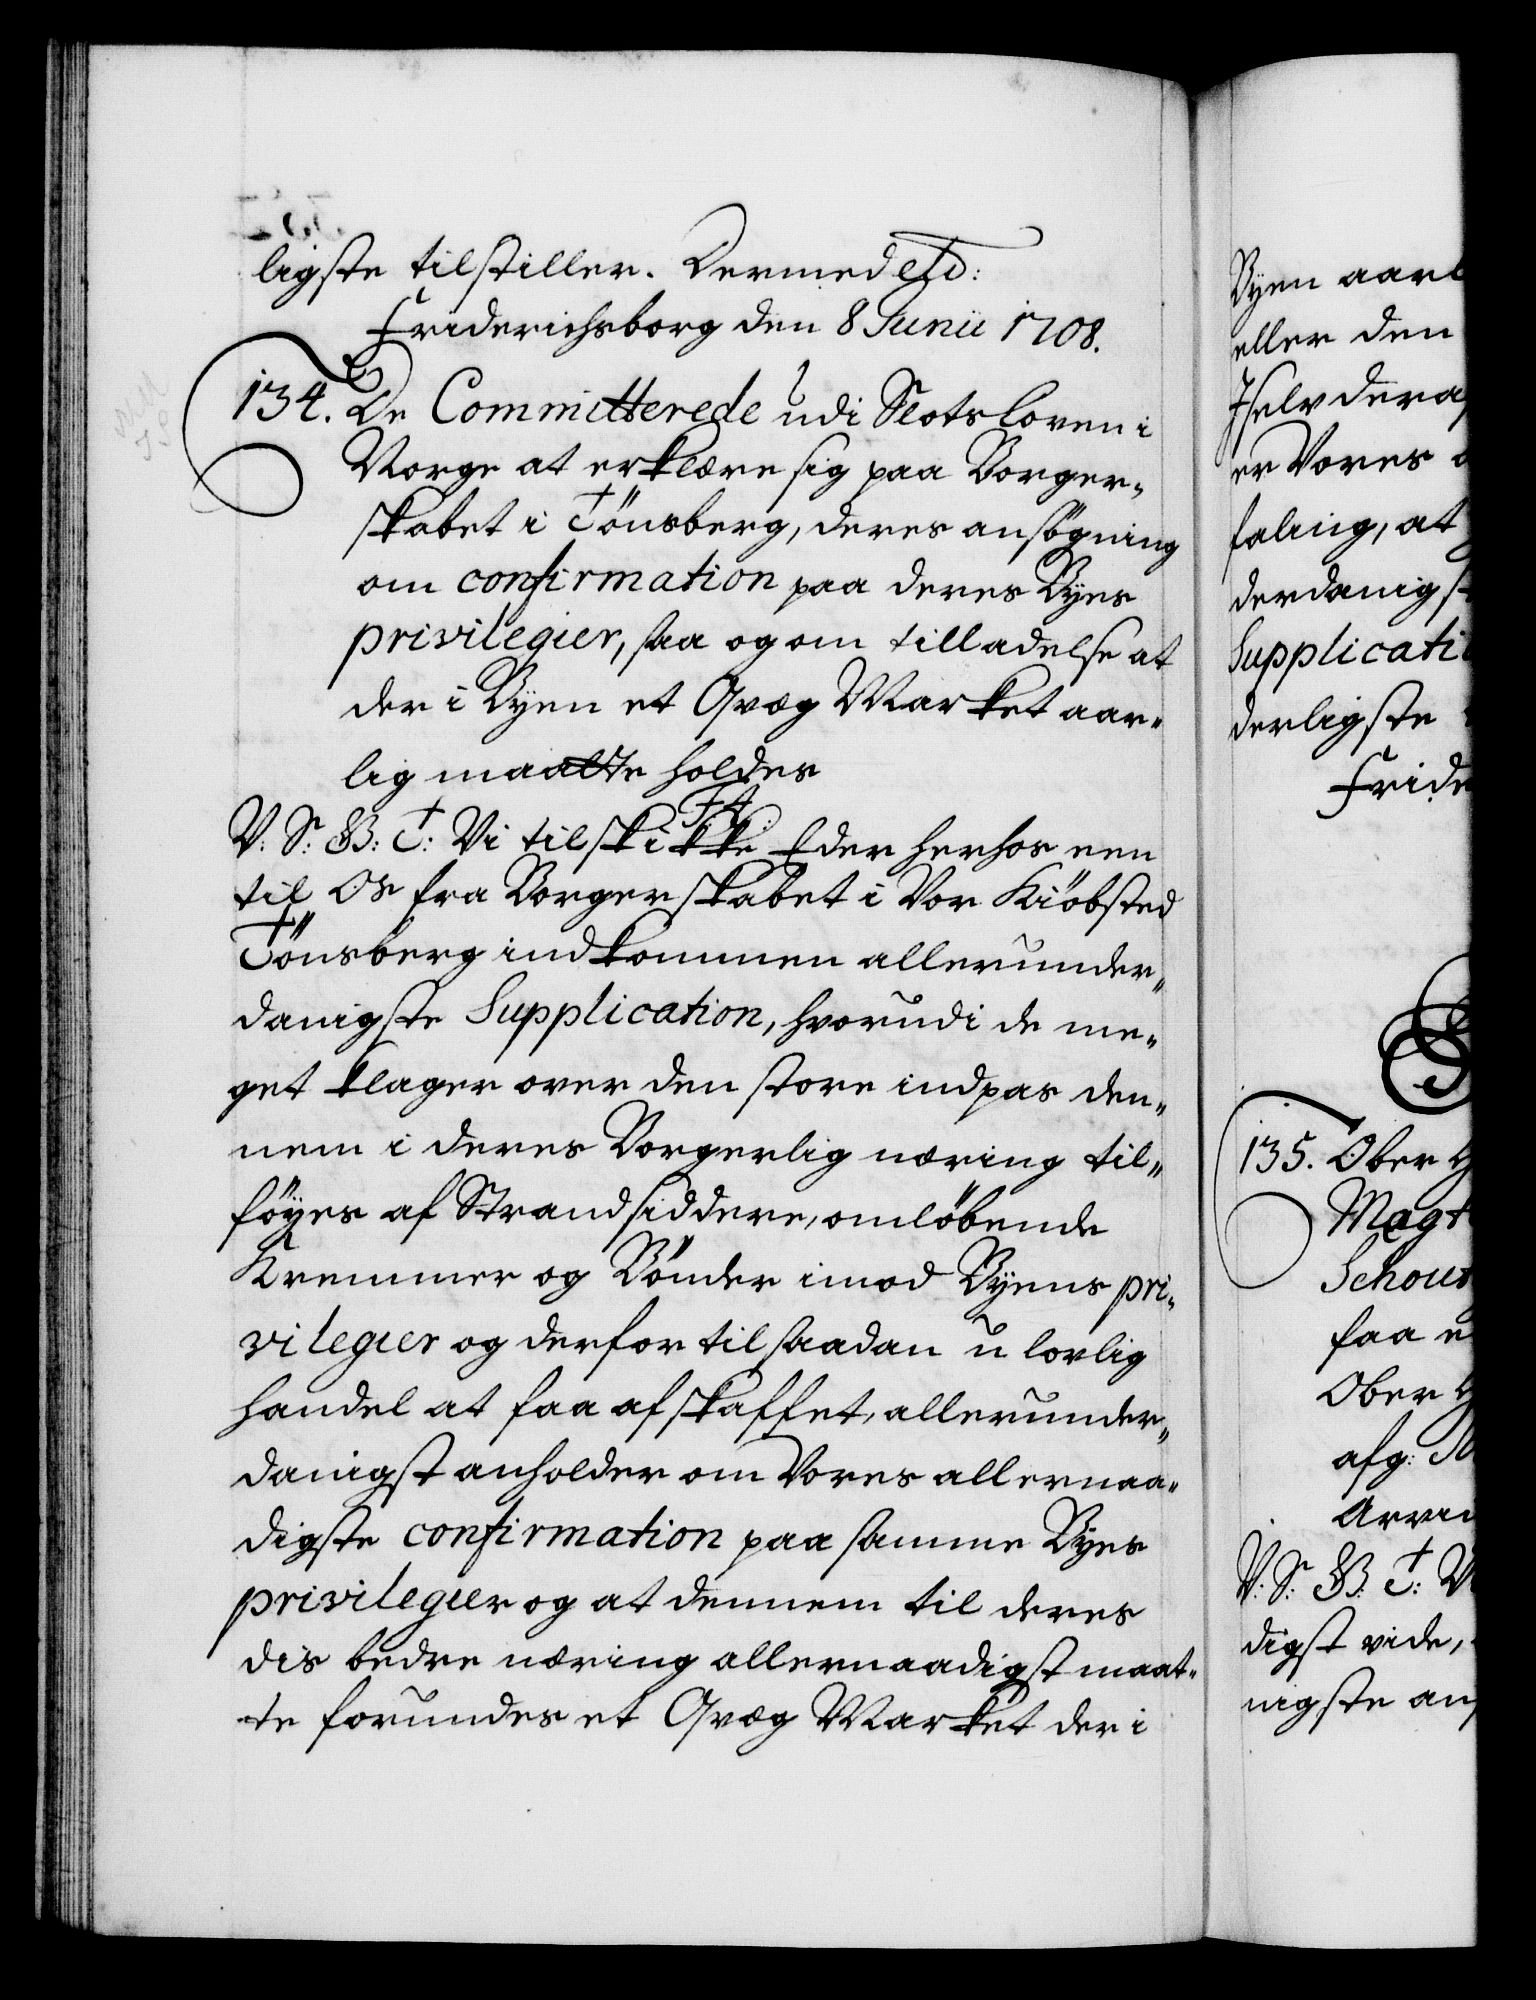 ligste tilstiller. Dermed etc:
Friderichsborg den 8 Junii 1708.
134. De Committerede udi Slotsloven i
Norge at erklære sig paa Borger-
skabet i Tönsberg, deres ansögning
om confirmation paa deres Byes
privilegier, saa og om tilladelse at
der i Byen et Qvæg Market aar-
lig maatte holdes
F4.
V: S: G: T: Vi tilskikke Eder herhos een
til Os fra Borgerskabet i Vor Kiöbsted
Tönsberg indkommen allerunder-
danigste Supplication, hvorudi de me-
get klager over den store indpas den-
nem i deres Borgerlig næring til-
föyes af Strandsiddere, omlöbende
Kremmer og Bönder imod Byens pri-
vilegier og derfor til saadan u lovlig
handel at faa afskaffet, allerunder-
danigst anholder om Vores allernaa-
digste confirmation paa samme Byes
privilegier og at dennem til deres
dis bedre næring allernaadigst maat-
te forundes et Qvæg Market der i
Byen aarl
eller den
Iselv deraf
er Vores
faling, at
derdanigst
Supplicati
derligste
Fride
135. Ober
Magt
Schout
faa
Ober
afg:
Arvin
V: S: G: T: V
digst vide,
nigste ans